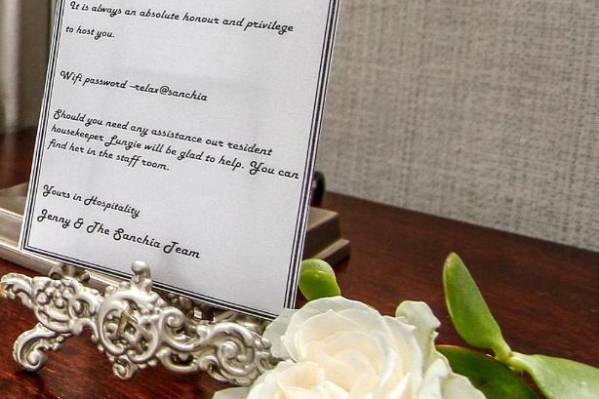 It is always an absolute honour and privilege
to host you.
Wifi password -relax@sanchia
Should you need any assistance our resident
housekeeper Lungie will be glad to help. You can
find her in the staff room.
Yours in Hospitality
Jenny & The Sanchia Team